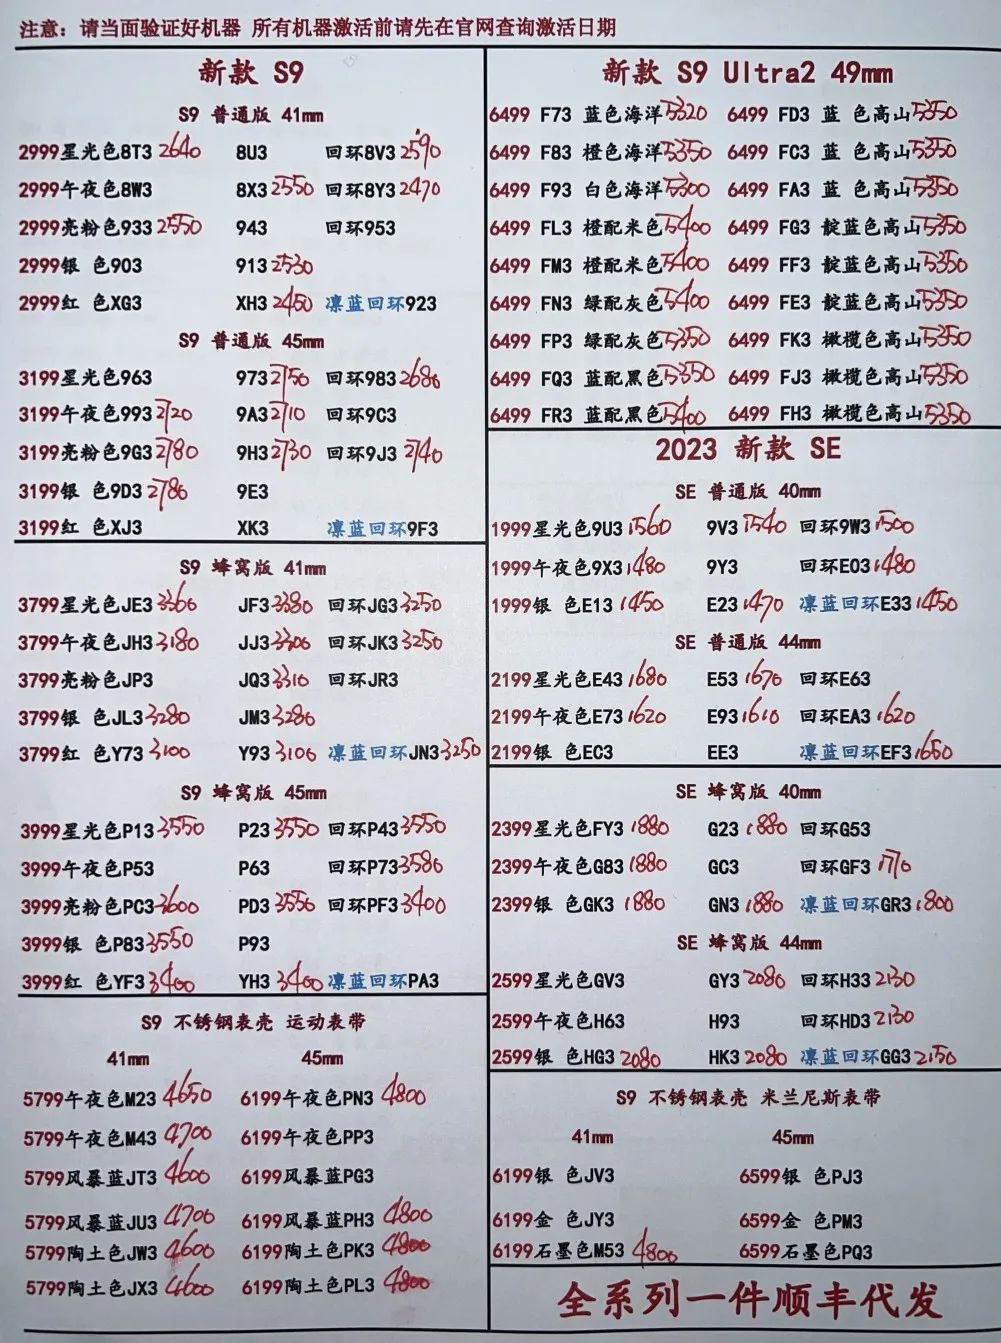 注意：请当面验证好机器 所有机器激活前请先在官网查询激活日期
新款 S9
S9 普通版 41mm
2999星光色8T3 2640 8U3 回环8V3 2590
2999午夜色8W3 8X3 2550 回环8Y3 2470
2999亮粉色933 2550 943 回环953
2999银 色903 913 2530
2999红 色XG3 XH3 2450 凛蓝回环923
S9 普通版 45mm
3199星光色963 973 2750 回环983 2680
3199午夜色993 2720 9A3 2710 回环9C3
3199亮粉色9G3 2780 9H3 2730 回环9J3 2740
3199银 色9D3 2780 9E3
3199红 色XJ3 XK3 凛蓝回环9F3
S9 蜂窝版 41mm
3799星光色JE3 3360 JF3 3380 回环JG3 3250
3799午夜色JH3 3180 JJ3 3300 回环JK3 3250
3799亮粉色JP3 JQ3 3310 回环JR3
3799银 色JL3 3280 JM3 3280
3799红 色Y73 3100 Y93 3100 凛蓝回环JN3 3250
S9 蜂窝版 45mm
3999星光色P13 3550 P23 3550 回环P43 3550
3999午夜色P53 P63 回环P73 3580
3999亮粉色PC3 3600 PD3 3550 回环PF3 3400
3999银 色P83 3550 P93
3999红 色YF3 3400 YH3 3400 凛蓝回环PA3
S9 不锈钢表壳 运动表带
41mm 45mm
5799午夜色M23 4650 6199午夜色PN3 4800
5799午夜色M43 4700 6199午夜色PP3
5799风暴蓝JT3 4600 6199风暴蓝PG3
5799风暴蓝JU3 4700 6199风暴蓝PH3 4800
5799陶土色JW3 4600 6199陶土色PK3 4800
5799陶土色JX3 4600 6199陶土色PL3 4800
新款 S9 Ultra2 49mm
6499 F73 蓝色海洋5320 6499 FD3 蓝 色高山5350
6499 F83 橙色海洋5350 6499 FC3 蓝 色高山5350
6499 F93 白色海洋5300 6499 FA3 蓝 色高山5350
6499 FL3 橙配米色5400 6499 FG3 靛蓝色高山5350
6499 FM3 橙配米色5400 6499 FF3 靛蓝色高山5350
6499 FN3 绿配灰色5400 6499 FE3 靛蓝色高山5350
6499 FP3 绿配灰色5350 6499 FK3 橄榄色高山5350
6499 FQ3 蓝配黑色5350 6499 FJ3 橄榄色高山5350
6499 FR3 蓝配黑色5400 6499 FH3 橄榄色高山5350
2023 新款 SE
SE 普通版 40mm
1999星光色9U3 1560 9V3 1540 回环9W3 1500
1999午夜色9X3 1480 9Y3 回环E03 1480
1999银 色E13 1450 E23 1470 凛蓝回环E33 1450
SE 普通版 44mm
2199星光色E43 1680 E53 1670 回环E63
2199午夜色E73 1620 E93 1610 回环EA3 1620
2199银 色EC3 EE3 凛蓝回环EF3 1650
SE 蜂窝版 40mm
2399星光色FY3 1880 G23 1880 回环G53
2399午夜色G83 1880 GC3 回环GF3 1770
2399银 色GK3 1880 GN3 1880 凛蓝回环GR3 1800
SE 蜂窝版 44mm
2599星光色GV3 GY3 2080 回环H33 2130
2599午夜色H63 H93 回环HD3 2130
2599银 色HG3 2080 HK3 2080 凛蓝回环GG3 2150
S9 不锈钢表壳 米兰尼斯表带
41mm 45mm
6199银 色JV3 6599银 色PJ3
6199金 色JY3 6599金 色PM3
6199石墨色M53 4800 6599石墨色PQ3
全系列一件顺丰代发